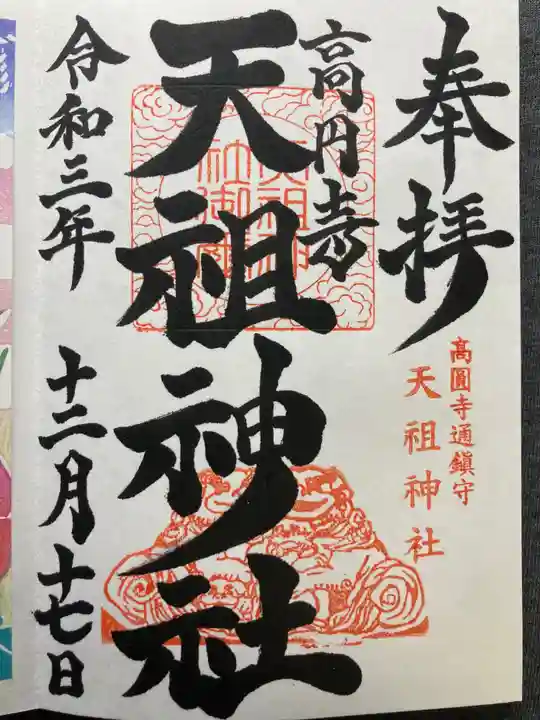 奉拝
高圓寺通鎮守
天祖神社
高円寺
天祖神社
令和三年 十二月十七日